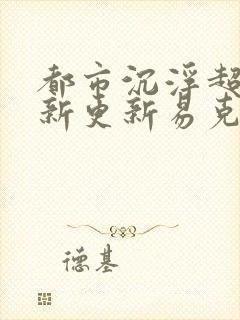 都市沉浮超
新更新易克
德基